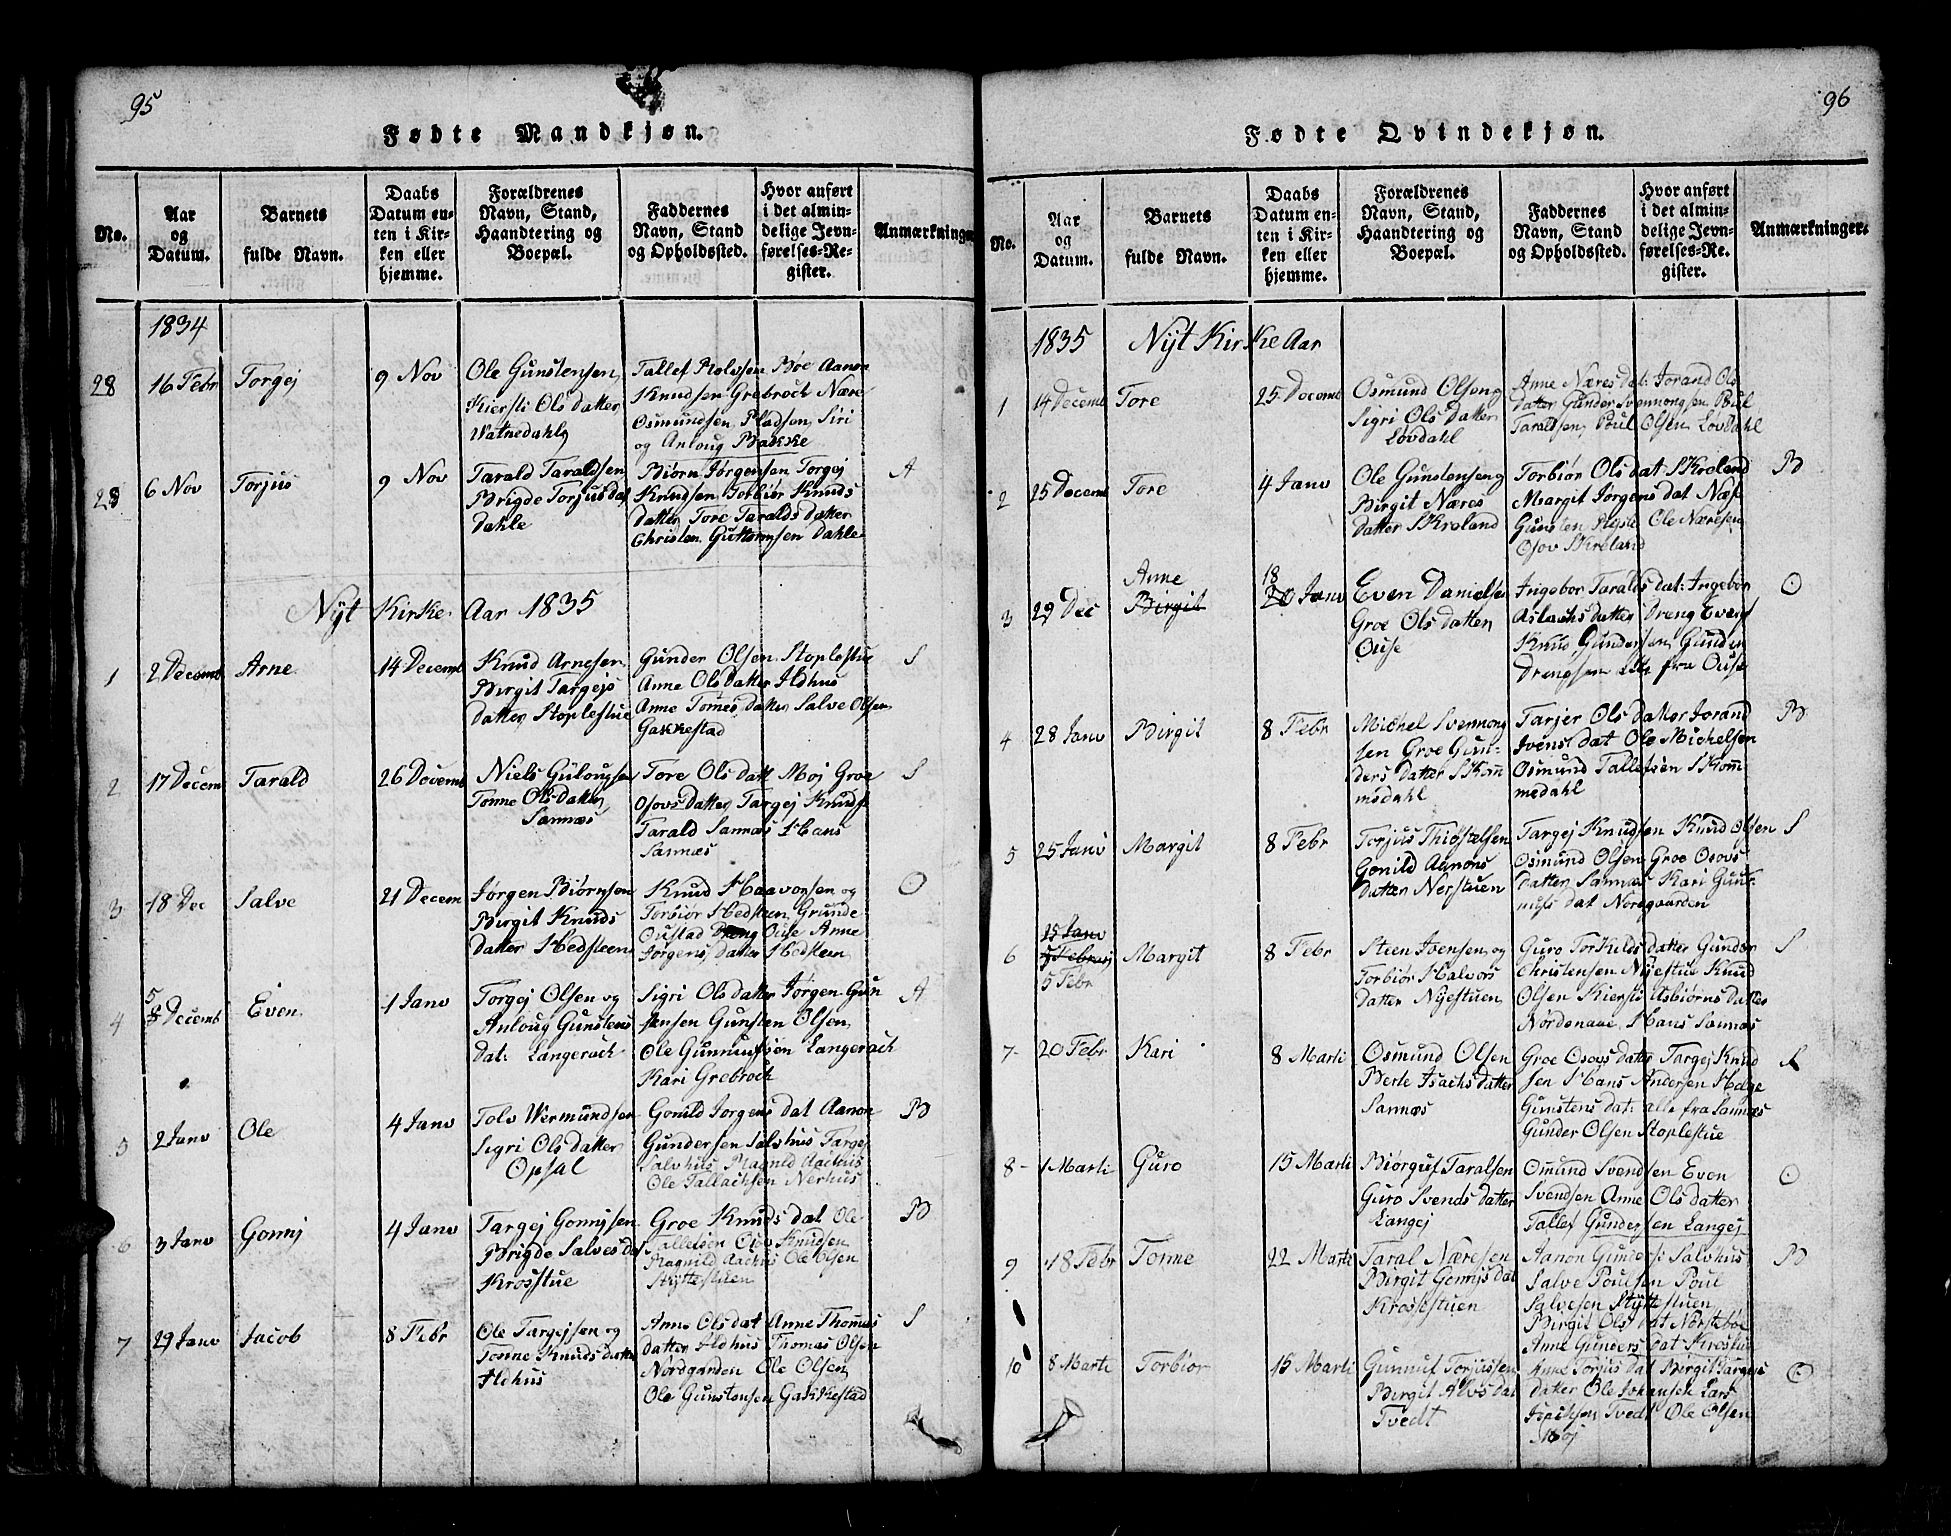 95
Fødte Mandkjøn.
No.
Aar og Datum.
Barnets fulde Navn.
Daabs Datum enten i Kirken eller hjemme.
Forældrenes Navn, Stand, Haandtering og Boepæl.
Faddernes Navn, Stand og Opholdssted.
Hvor anført i det almindelige Jevnførelses-Register.
Anmærkninger
1834
28 16 Febr Torgej 9 Nov
Ole Gunstensen
Kiersti Olsdatter
Watnedahl
Tallef Rolvsen Bøe Aanon
Knudsen Grebrock Nære
Osmundsen Pladsen Siri
og Anloug Bakke
6 Nov Torjus 9 Nov
Tarald Taraldsen
Brigde Torjusdat
Dahle
Biørn Jørgensen Torgej
Knudsen Torbiør Knuds
datter Tore Taralds datter
Christen Guttormsen Dahle
A
Nyt Kirke Aar 1835
1 2 Decemb Arne 14 Decemb
Knud Arnesen
Birgit Targejs
datter Stoplestue
Gunder Olsen Stoplestue
Anne Olsdatter Ildhus
Anne Tomes datter Salve Olsen
Gakkestad
S
2 17 Decem Tarald 26 Decemb
Niels Gulougsen
Tonne Olsdatter
Sannæs
Tore Olsdatt Moj Groe
Osovsdatter Targej Knuds
Tarald Sannæs Hans
Sannæs
S
3 18 Dec Salve 21 Decem
Jørgen Biørnsen
Birgit Knuds
datter Hedsteen
Knud Haavorsen og
Torbiør Hedsteen Grunde
Oustad Dreng Ouse Anne
Jørgens datter Hedsteen
O
4 5 Decemb Even 1 Janv
Torgej Olsen og
Anloug Gunstens
dat: Langerach
Sigri Olsdatter Jørgen Gun
stensen Gunsten Olsen
Ole Gunnufsen Langerach
Kari Grebrock
A
5 2 Janv Ole 4 Janv
Tolv Wermundsen
Sigri Olsdatter
Opsal
Gonild Jorgens dat Aanon
Gundersen Salvhus Targej
Salvhus Magnild Aachus
Ole Tallachsen Nerhus
B
6 3 Janv Gomij 4 Janv
Targej Gomijsen
Brigde Salvesdat
Krosstue
Groe Knuds dat Ole
Tallefsen Osov Knudsen
Magnild Aachus Ole Olsen
Styttestuen
B
7 29 Janv Jacob 8 Febr
Ole Targejsen og
Tonne Knuds datter
Ildhus
Anne Olsdat Anne Thomæs
datter Ildhus Thomas Olsen
Nordgarden Ole Olsen
Ole Gunstensen Gakkestad
S
96
Fødte Qvindekjøn.
No.
Aar og Datum.
Barnets fulde Navn.
Daabs Datum enten i Kirken eller hjemme.
Forældrenes Navn, Stand, Haandtering og Boepæl.
Faddernes Navn, Stand og Opholdssted.
Hvor anført i det almindelige Jevnførelses-Register.
Anmærkninger.
1835 Nyt Kirke Aar
1 14 Decemb Tore 25 Decemb
Osmund Olsen
Sigri Olsdatter
Lovdahl
Anne Næresdat: Jorand Ols
datter Gunder Svennongsen Poul
Taraldsen, Poul Olsen Lovdahl
2 25 Decemb Tore 4 Janv
Ole Gunstensen
Birgit Næres
datter Skreland
Torbiør Olsdat: Skreland
Margit Jorgens dat Næse
Gunsten Ole Næresen
Osov Skreland
B
3 29 Dec Anne Birgit 18 20 Janv
Even Danielsen
Groe Olsdatter
Ouse
Ingebor Taralds dat: Ingebor
Aslachs datter Dreng Evens
Knud Gundersen Gunder
Drengsen alle fra Ouse
O
4 28 Janv Birgit 8 Febr
Michel Svennong
sen Groe Gun-
ders datter Skom
medahl
Tarjer Olsdatter Jorand
Ivens dat Ole Michelsen
Osmund Tallefsen Skom
medahl
B
5 25 Janv Margit 8 Febr
Torjus Thiostelsen
Gonild Aanons
datter Nerstuen
Targej Knudsen Knud Olsen
Osmund Olsen Groe Osovs
datter Sannæs Kari Gun-
nufs dat Norsgaarden
S
6 15 Janv 5 Febr Margit 8 Febr
Steen Ivensen og
Torbiør Halvors
datter Nyestuen
Guro Torkilds datter Gunder
Christensen Nyestue Knud
Olsen Kiersti Asbiørns datter
Nordenaae Hans Sannæs
S
7 20 Febr Kari 8 Marti
Osmund Olsen
Berte Isachs datter
Sannæs
Groe Osovs datter Targej Knud
sen Hans Andersen Helge
Gunstens dat: alle fra Sannæs
Gunder Olsen Stoplestue
S
8 1 Marti Guro 15 Marti
Biørguf Taralsen
Guro Svends datter
Langej
Omund Svendsen Even
Svendsen Anne Olsdatter
Tallef Gundersen Langej
O
9 18 Febr Tonne 22 Marti
Taral Næresen
Birgit Gomijs dat
Krossestuen
Aanon Gunders: Salvhus
Salve Poulsen Poul
Salvesen Styttestuen
Birgit Olsdat Nørstebøe
Anne Gunders dat Krostue
B
10 8 Marti Torbiør 15 Marti
Gunnuf Torjussen
Birgit Alvs dat
Tvedt
Anne Torjus dat Birgit Targejs
datter Ole Johansen Lars
Tvedt Ole Olsen
Moj
O